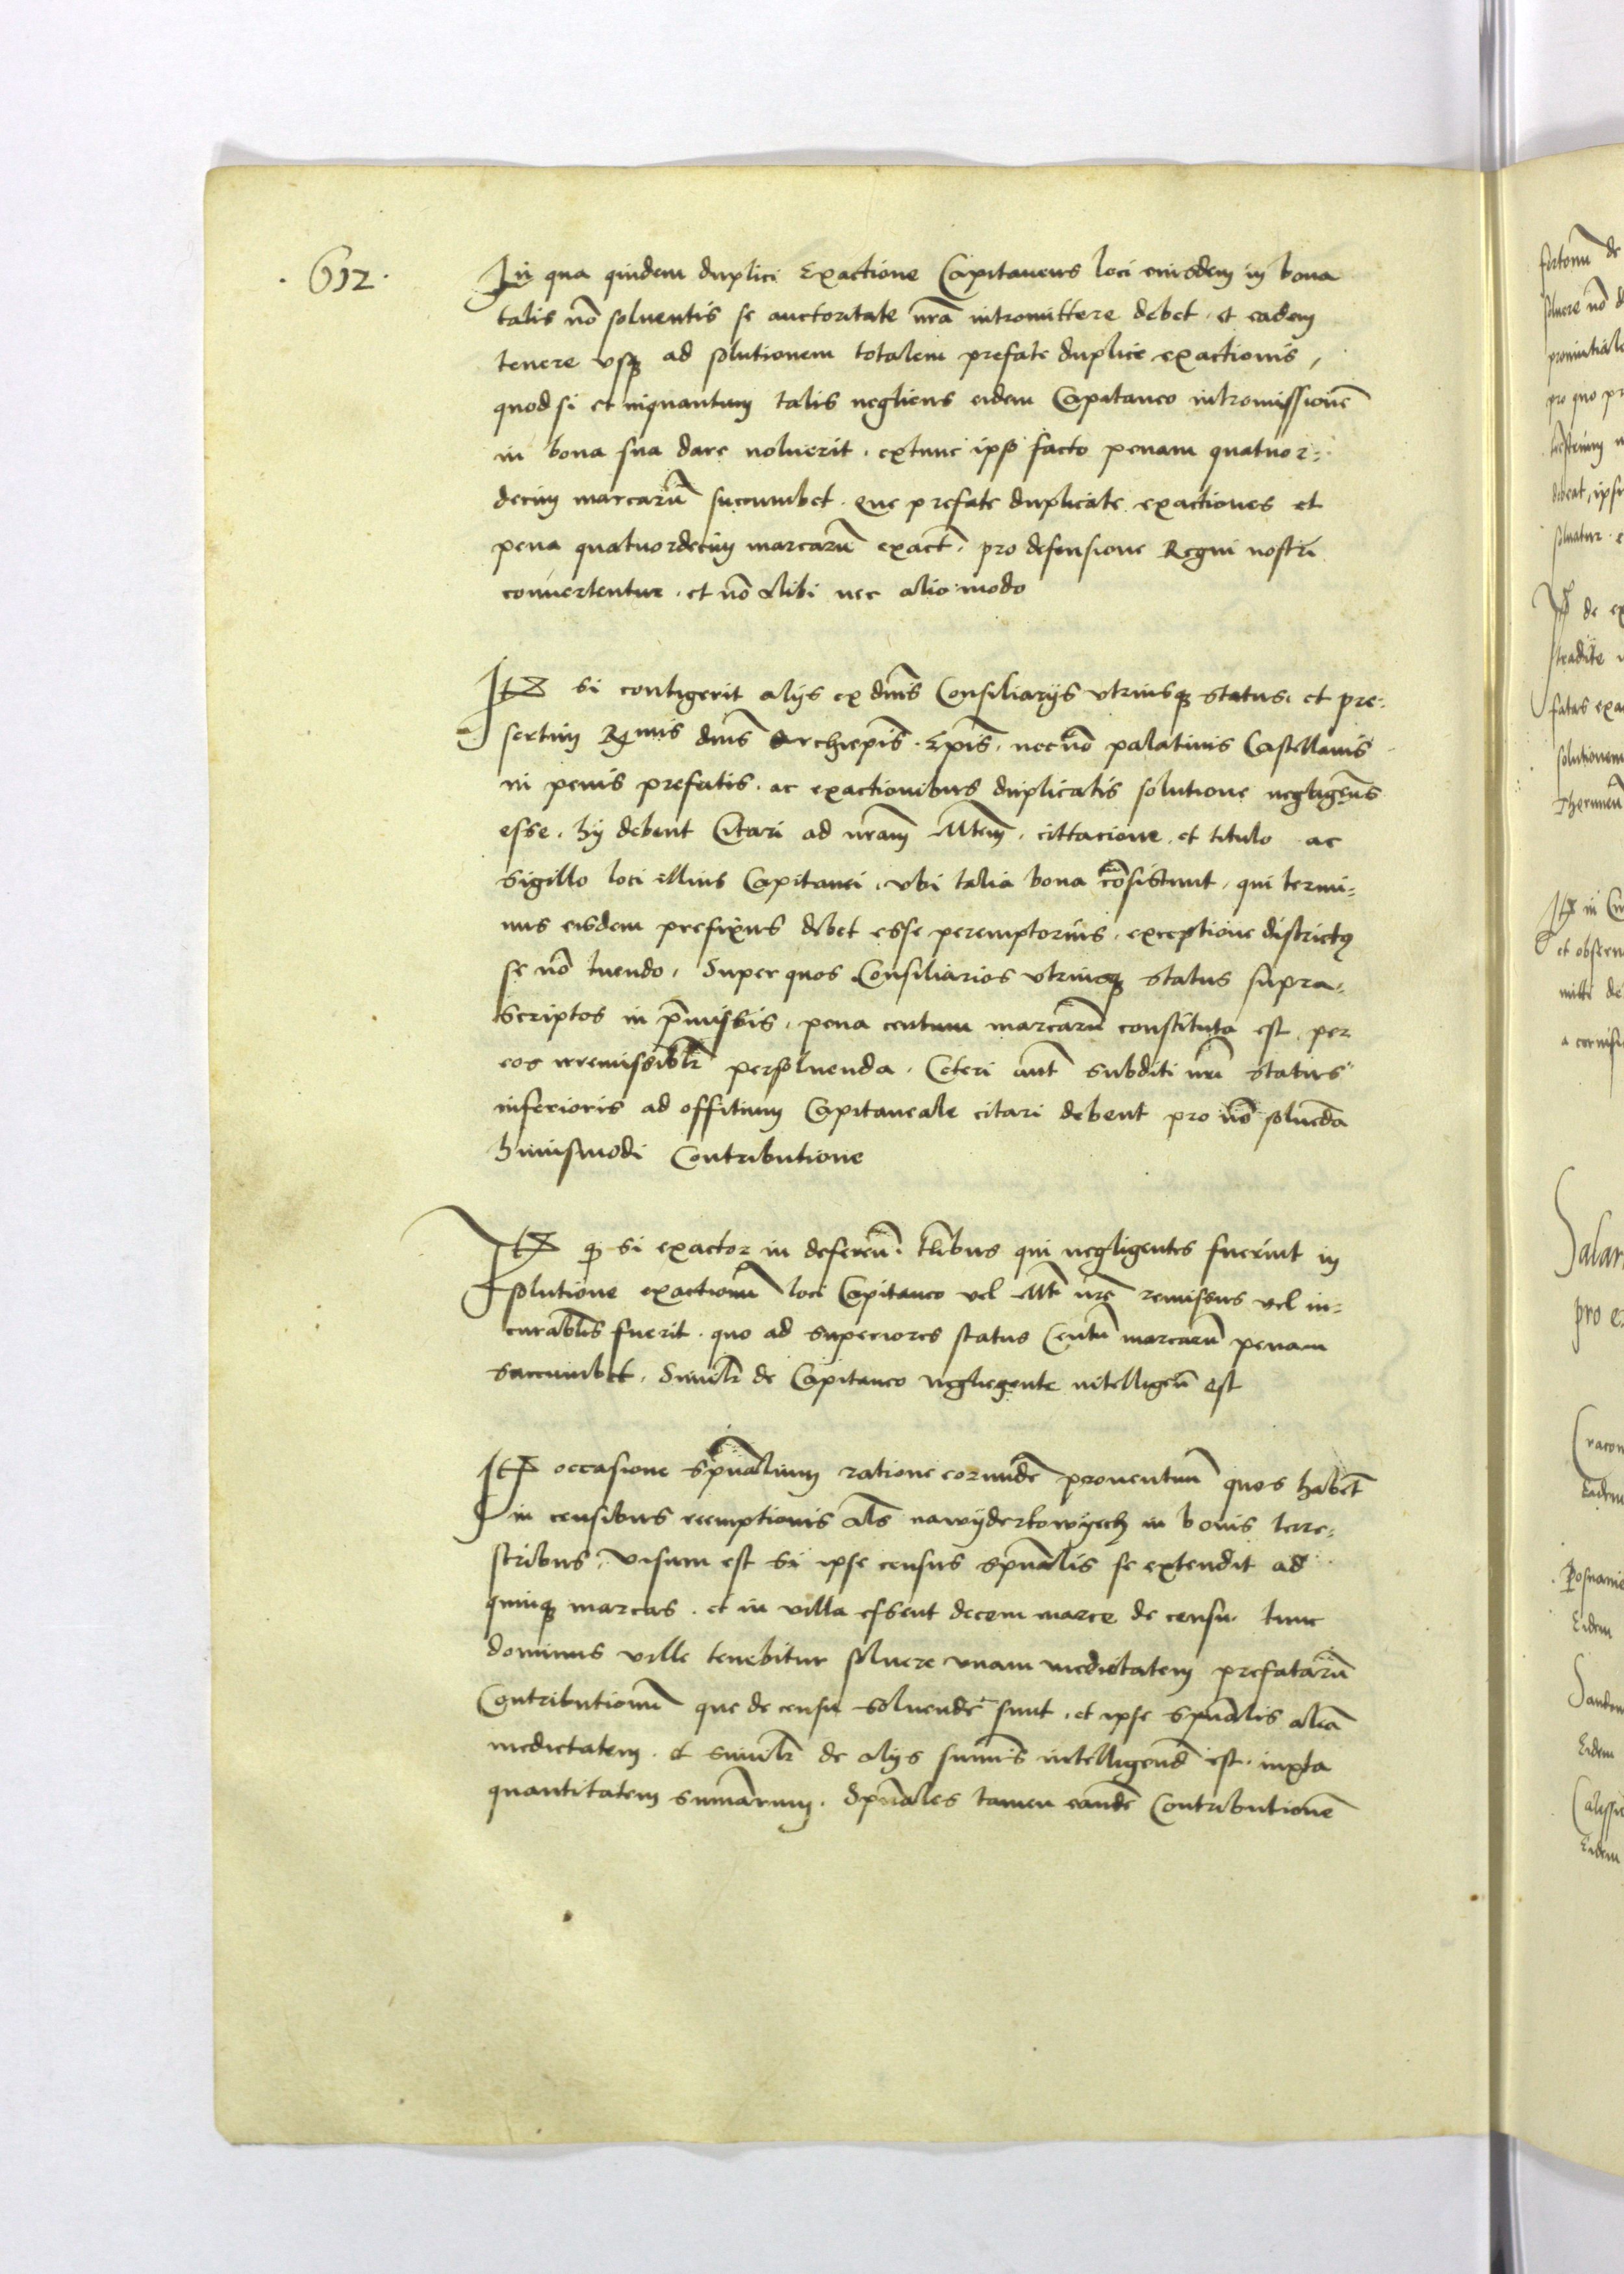 . 612 .
In qua quidem duplici Exactione Capitaneus loci eiusdem in bona
talis nō soluentis se auctoritate nrā intromittere debet . et eadem
tenere vsqꝫ ad solutionem totalem prefate duplice exactionis ,
quod si et inquantum talis negliens eidem Capitaneo intromissionē
in bona sua dare noluerit . extunc ipso facto penam quatuor=
decim marcarū succumbet . Que prefate duplicate exactiones et
pena quatuordecim marcarū exact̄ . pro defensione Regni nostri
conuertentur . et nō alibi nec alio modo
Itē si contigerit alijs ex dnīs Consiliarijs vtriusqꝫ status . et pre=
sertim Rmis dnīs Archiepīs . Epīs . necnō palatinis Castellanis
in penis prefatis . ac exactionibus duplicatis solutione negligens
esse . hij debent Citari ad nrām Mtēm . cittacione . et titulo ac
sigillo loci illius Capitanei . vbi talia bona cōsistunt . qui termi=
nus eisdem prefixus debet esse peremptorius . exceptione districtꝯ
se nō tuendo . Super quos Consiliarios vtriusqꝫ status supra=
scriptos in p̄missis . pena centum marcarū constituta est . per
eos irremissiblr̄ persoluenda . Ceteri aūt subditi nrī status
inferioris ad offitium Capitaneale citari debent pro nō soluēda
huiusmodi Contributione
Itē ꝙ si exactor in deferēn . tlībus qui negligentes fuerint in
solutione exactionū loci Capitaneo vel Mtī nrē remissus vel in=
curabīlis fuerit . quo ad superiores status Centū marcarū penam
succumbet . Simīlr̄ de Capitaneo negliegente intelligēn est
Itē occasione spūalium ratione eorundē prouentuū quos habēt
in censibus reemptionis als̄ nawyderkowyech in bonis terre=
stribus . visum est si ipse census spūalis se extendit ad
quinqꝫ marcas . et in villa essent decem marce de censu . tunc
dominus ville tenebitur soluere vnam medietatem prefatarū
Contributionū que de censu soluende sunt . et ipse spūalis aliā
medietatem . et simīlr̄ de alijs summīs intelligend̄ est . iuxta
quantitatem summārum . Spūales tamen eandē Contributionē